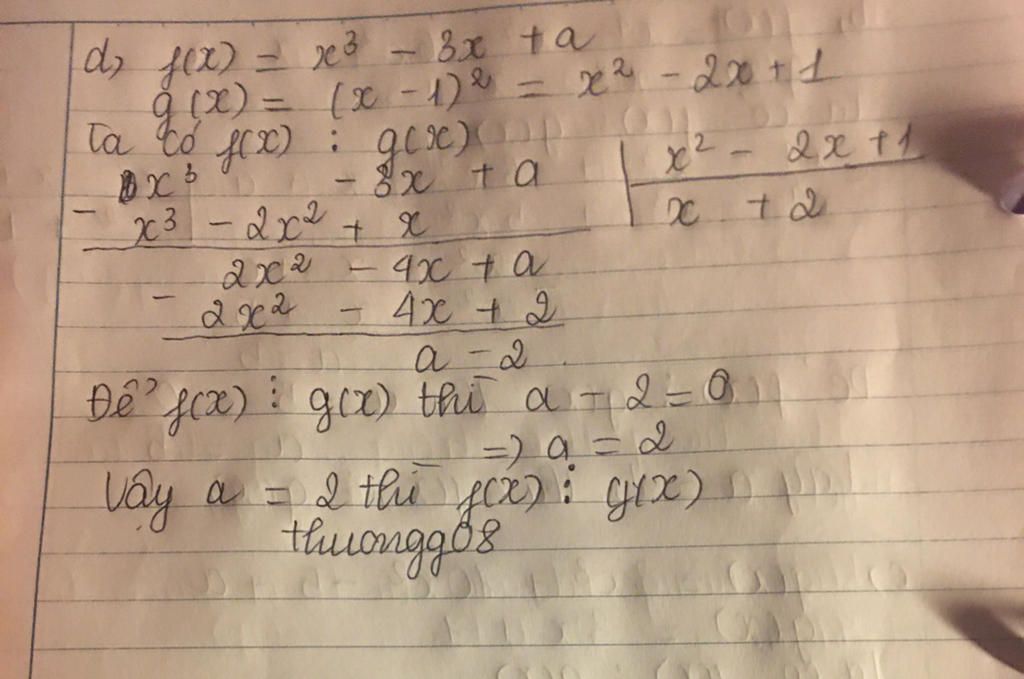 d, f(x) = x³ - 3x + a
g(x) = (x - 1)² = x² - 2x + 1
Ta có f(x) : g(x)
x³ - 3x + a | x² - 2x + 1
- x³ - 2x² + x | x + 2
2x² - 4x + a
- 2x² - 4x + 2
a - 2
Để f(x) ⋮ g(x) thì a - 2 = 0
=> a = 2
Vậy a = 2 thì f(x) ⋮ g(x)
thuongg08